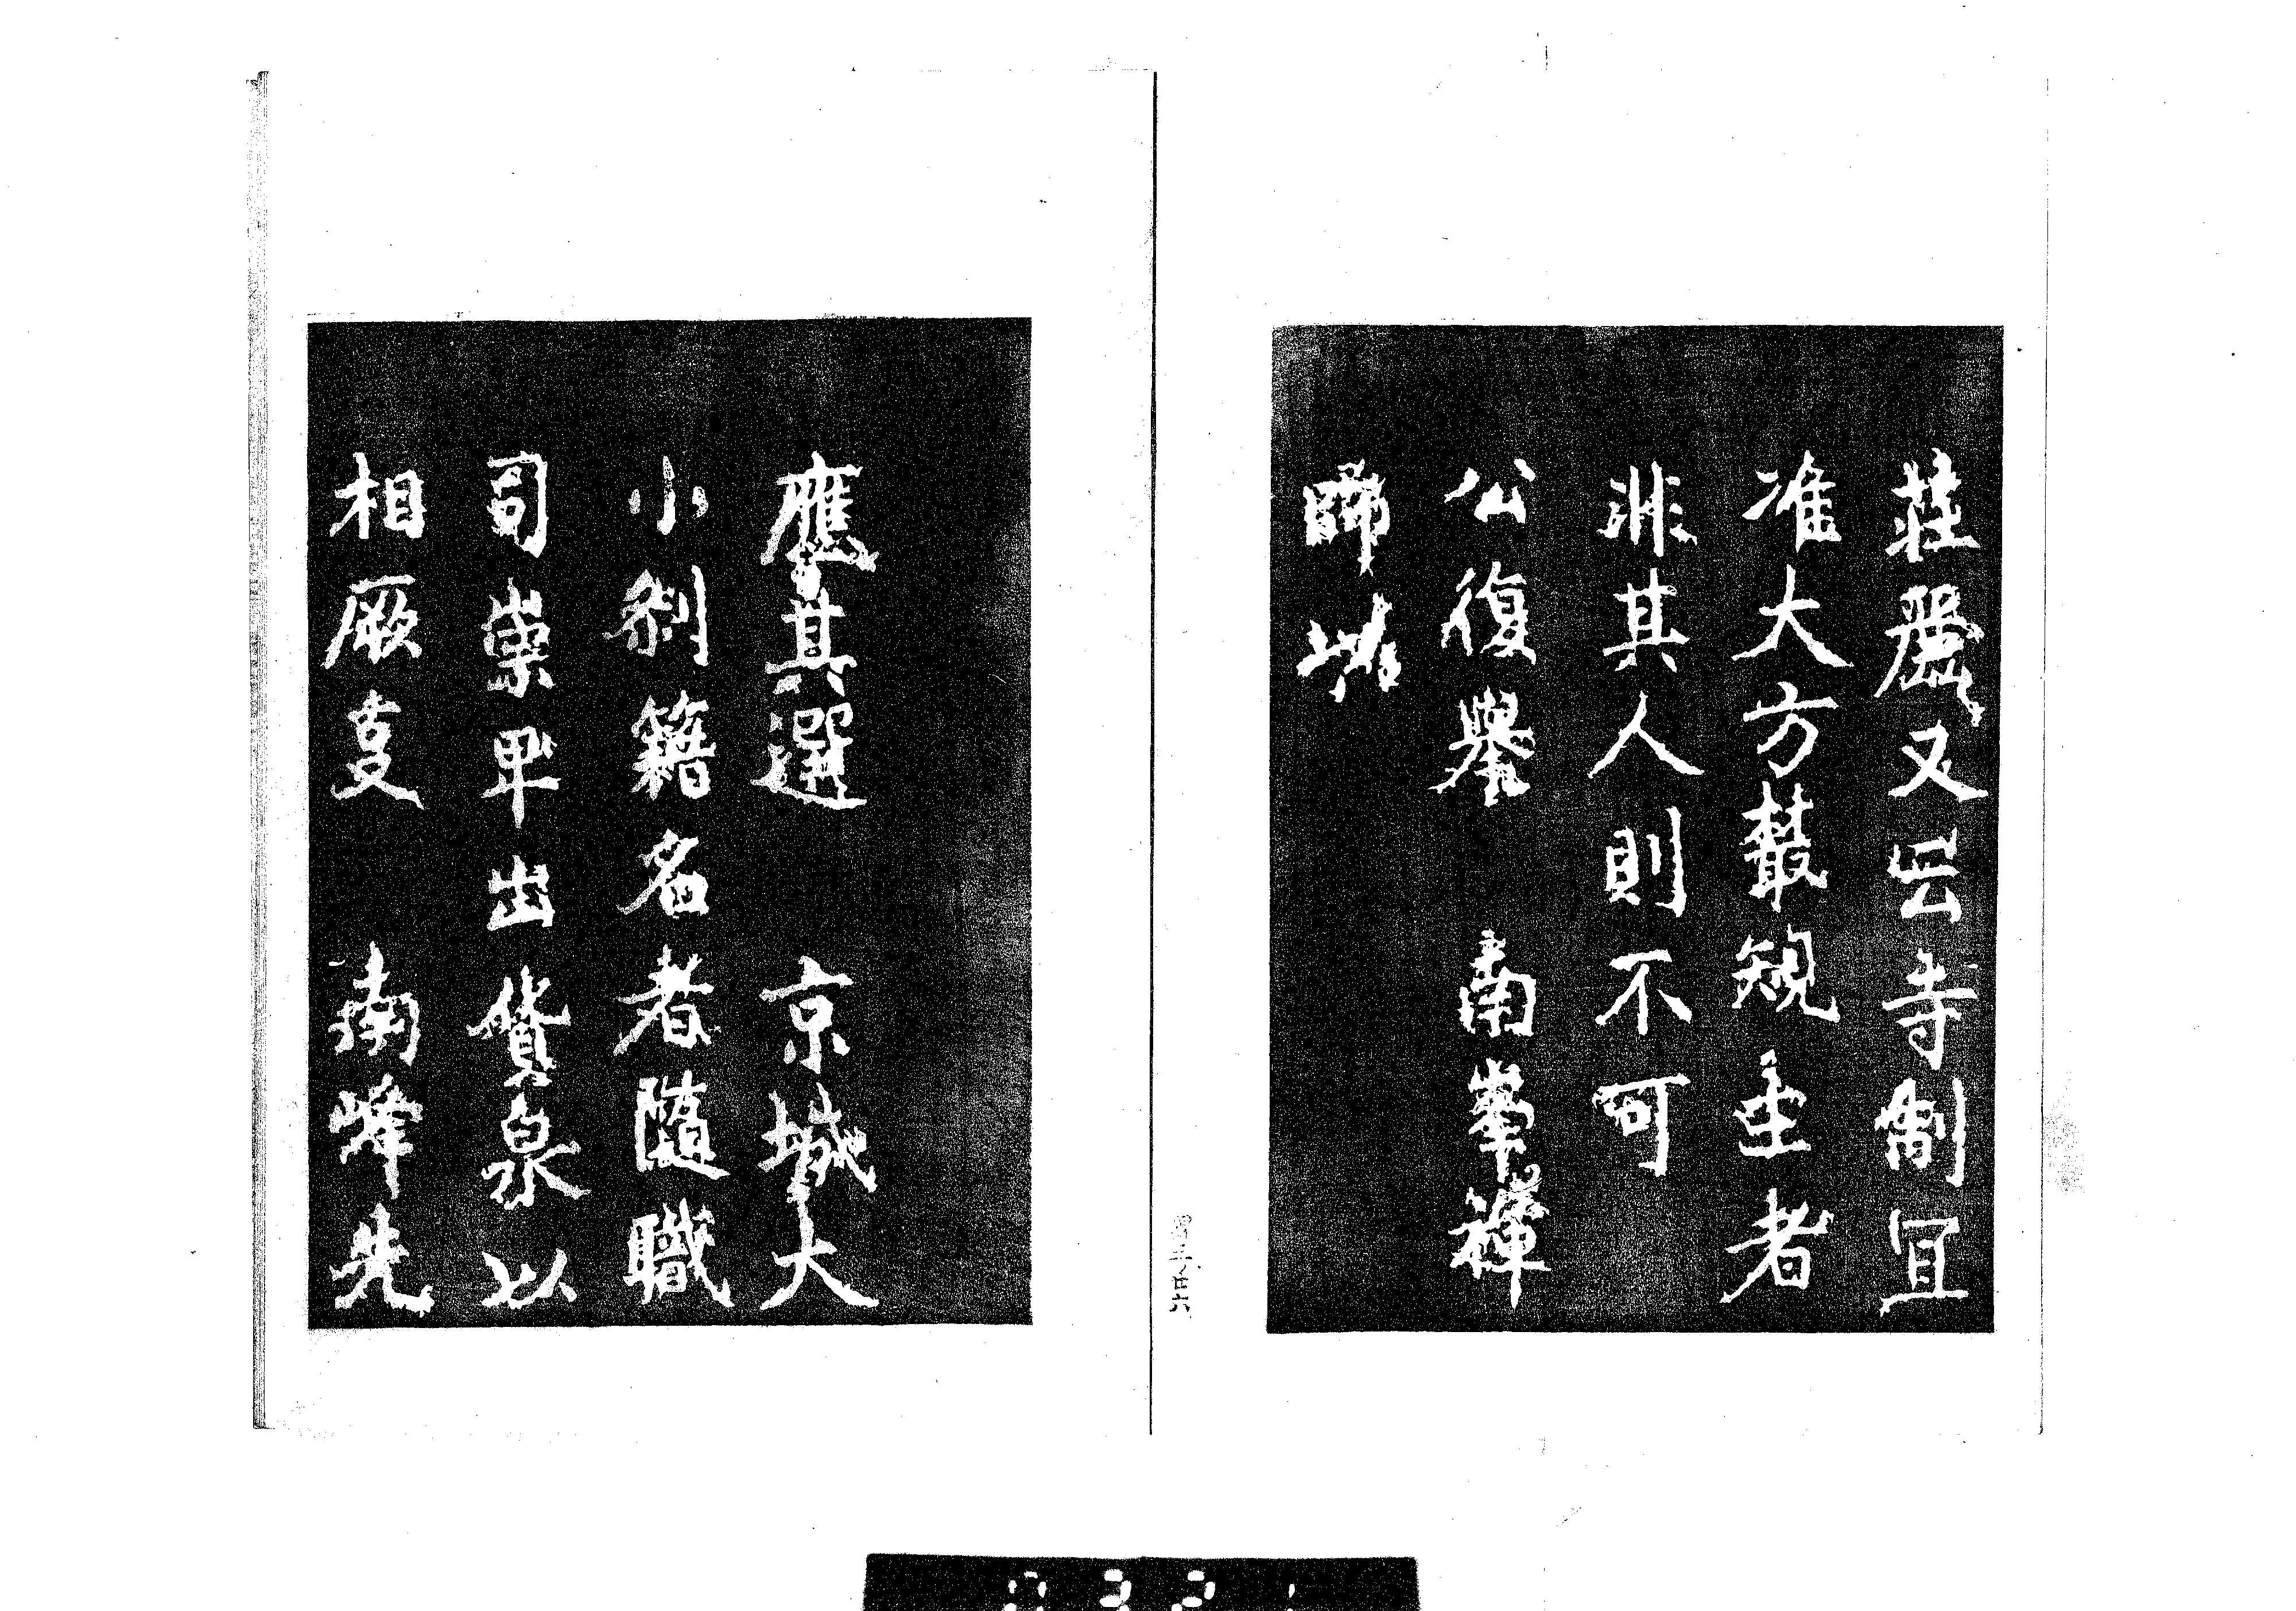 莊嚴又曰寺制宜
准大方叢規主者
非其人則不可
公復舉　南峯禪
師以
應其選　京城大
小刹籍名者隨職
司崇卑出貲泉以
相厥㪅　南峰先